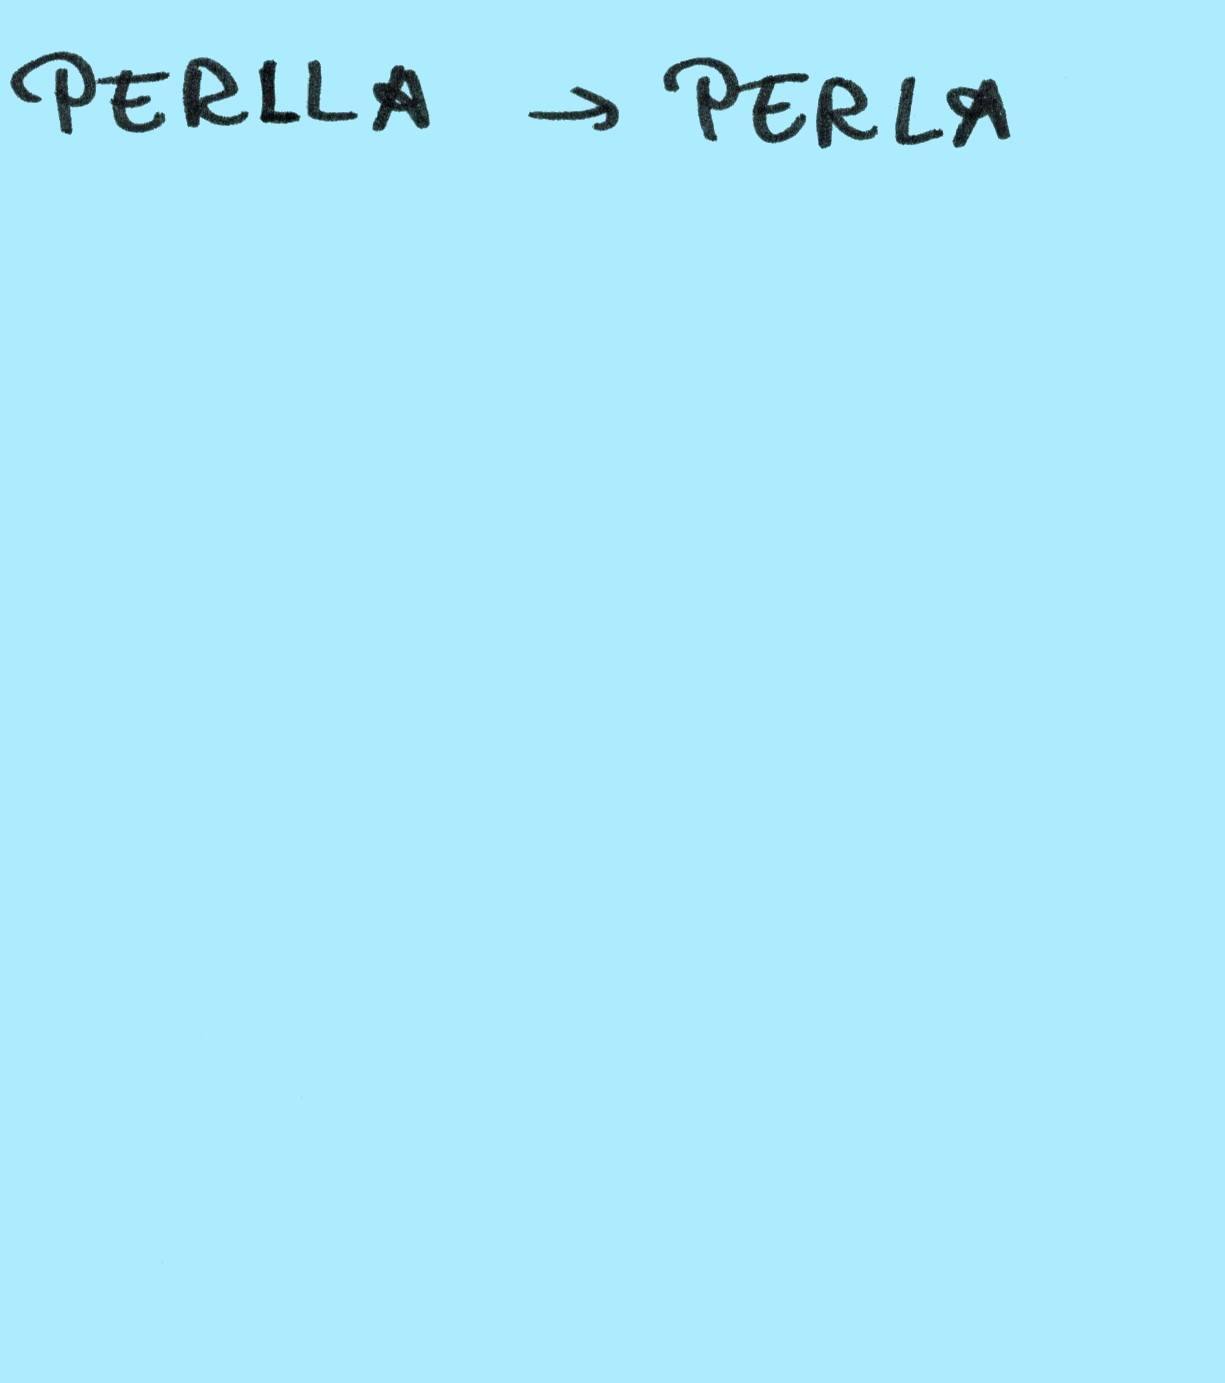 PERLLA → PERLA